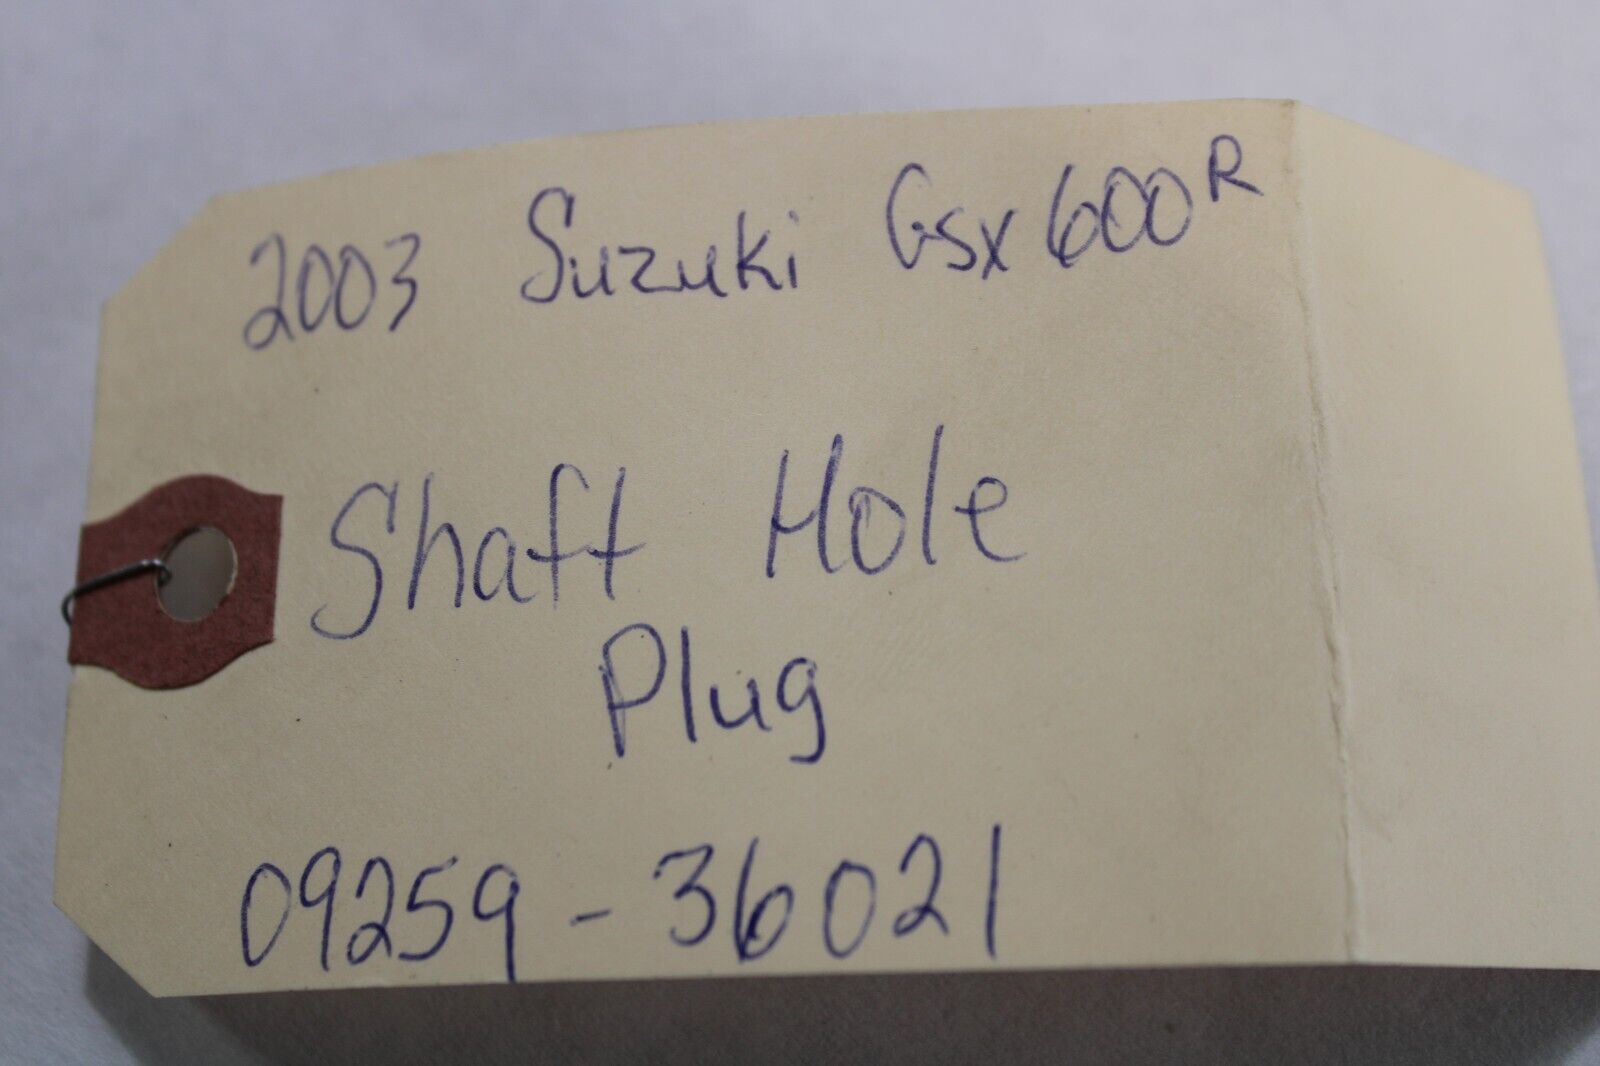 2003 Suzuki Gsx600R
Shaft Hole
Plug
09259-36021